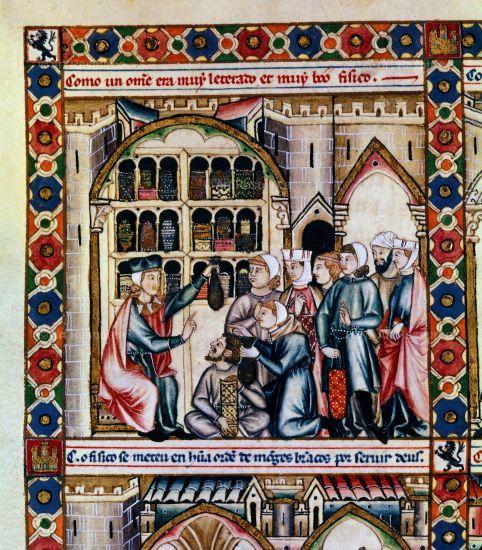 Como un ome era muy leterado et muy boo fisico.
C. o fisico se meteu en hũa ordẽ de mõges brãcos por seruir deus.
Co
C.